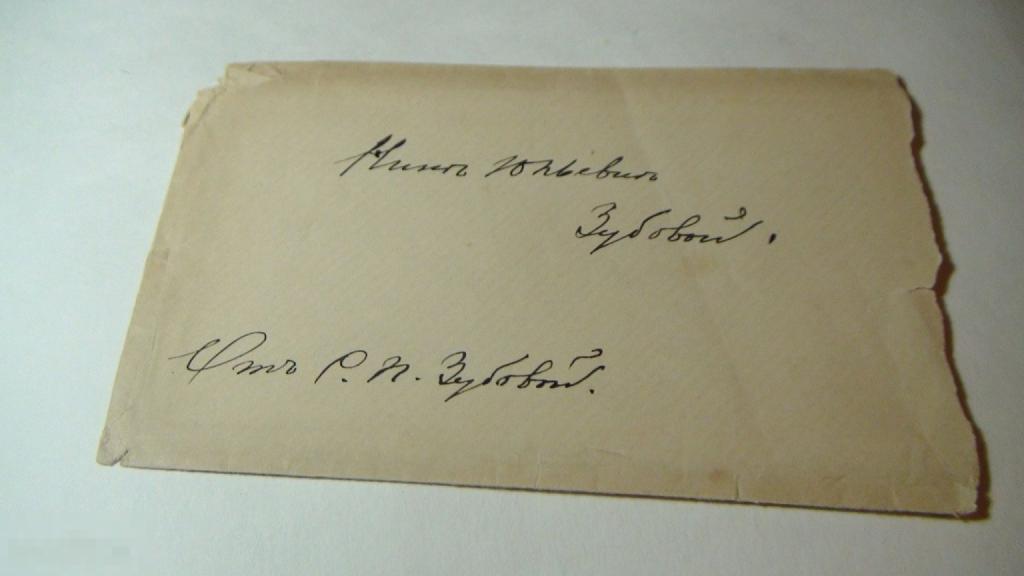 Нинѣ Юльевнѣ
Зубовой.
Отъ С. П. Зубовой.